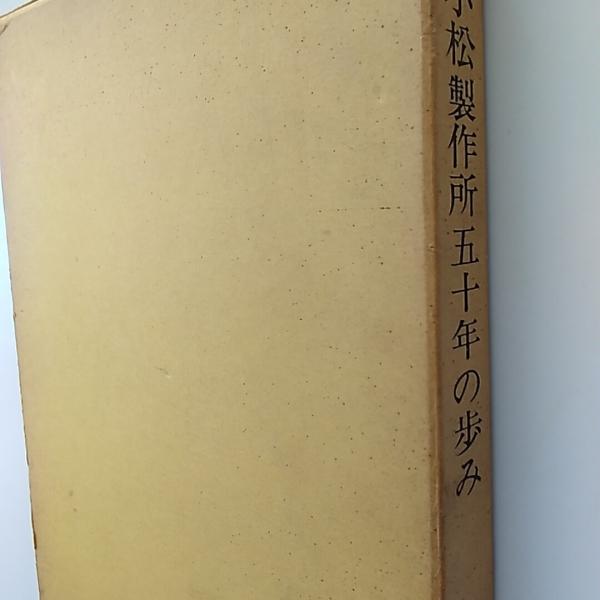 小松製作所五十年の歩み